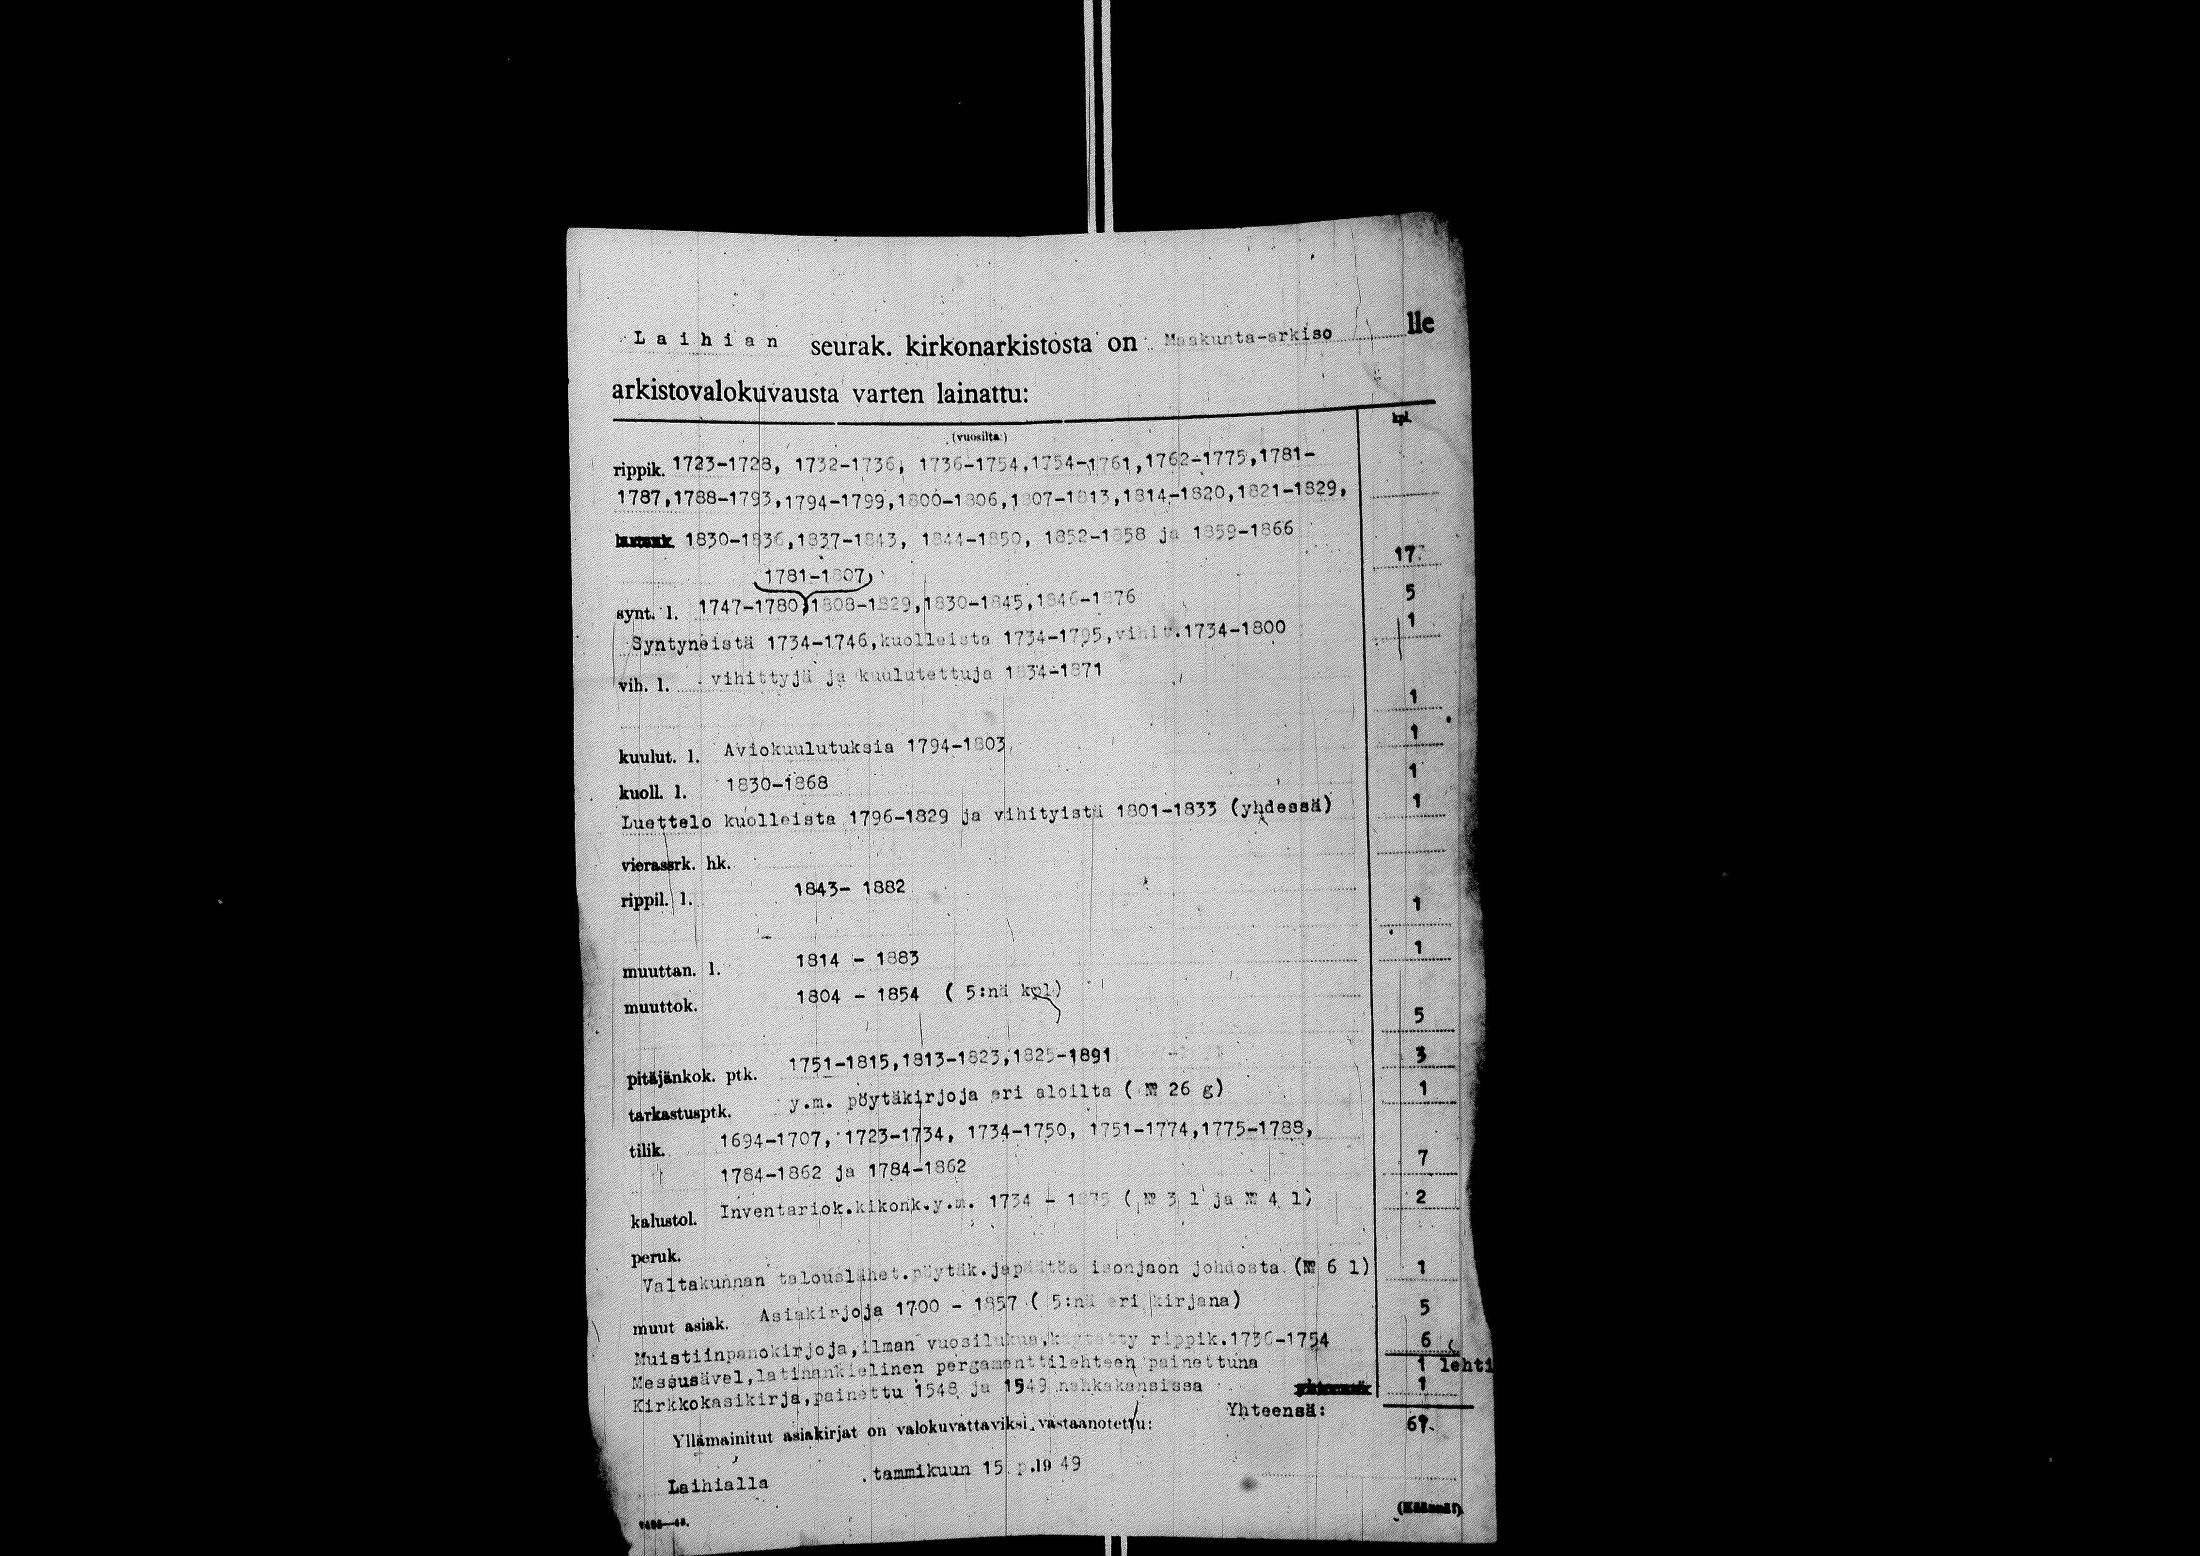 Laihian seurak. kirkonarkistosta on Maakunta-arkiso lle
arkistovalokuvausta varten lainattu:
kpl.
(vuosilta:)
rippik. 1723-1728, 1732-1736, 1736-1754,1754-1761,1762-1775,1781-
1787,1788-1793,1794-1799,1800-1806,1807-1813,1814-1820,1821-1829,
1830-1836,1837-1843, 1844-1850, 1852-1858 ja 1859-1866 17
1781-1807,
synt. l. 1747-1780,1808-1829,1830-1845,1846-1876 5
Syntyneistä 1734-1746,kuolleista 1734-1795,vihit.1734-1800 1
vih. l. vihittyjä ja kuulutettuja 1834-1871 1
kuulut. l. Aviokuulutuksia 1794-1803, 1
kuoll. l. 1830-1868 1
Luettelo kuolleista 1796-1829 ja vihityistä 1801-1833 (yhdessä) 1
vierassrk. hk.
rippil. l. 1843- 1882 1
muuttan. l. 1814 - 1883 1
muuttok. 1804 - 1854 ( 5:nä kpl) 5
pitäjänkok. ptk. 1751-1815,1813-1823,1825-1891 3
tarkastusptk. y.m. pöytäkirjoja eri aloilta ( № 26 g) 1
tilik. 1694-1707, 1723-1734, 1734-1750, 1751-1774,1775-1788,
1784-1862 ja 1784-1862 7
kalustol. Inventariok.kikonk.y.m. 1734 - 1875 ( № 3 l ja № 4 l) 2
peruk.
Valtakunnan talouslähet.pöytäk.japäätös isonjaon johdosta (№ 6 l) 1
muut asiak. Asiakirjoja 1700 - 1857 ( 5:nä eri kirjana) 5
Muistiinpanokirjoja,ilman vuosilukua, rippik.1736-1754 6
Messusävel,latinankielinen pergamenttilehteen painettuna 1 lehti
Kirkkokasikirja,painettu 1548 ja 1549 nahkakansissa 1
Yhteensä: 61.
Yllämainitut asiakirjat on valokuvattaviksi vastaanotettu:
Laihialla tammikuun 15 p.19 49
(Käännä!)